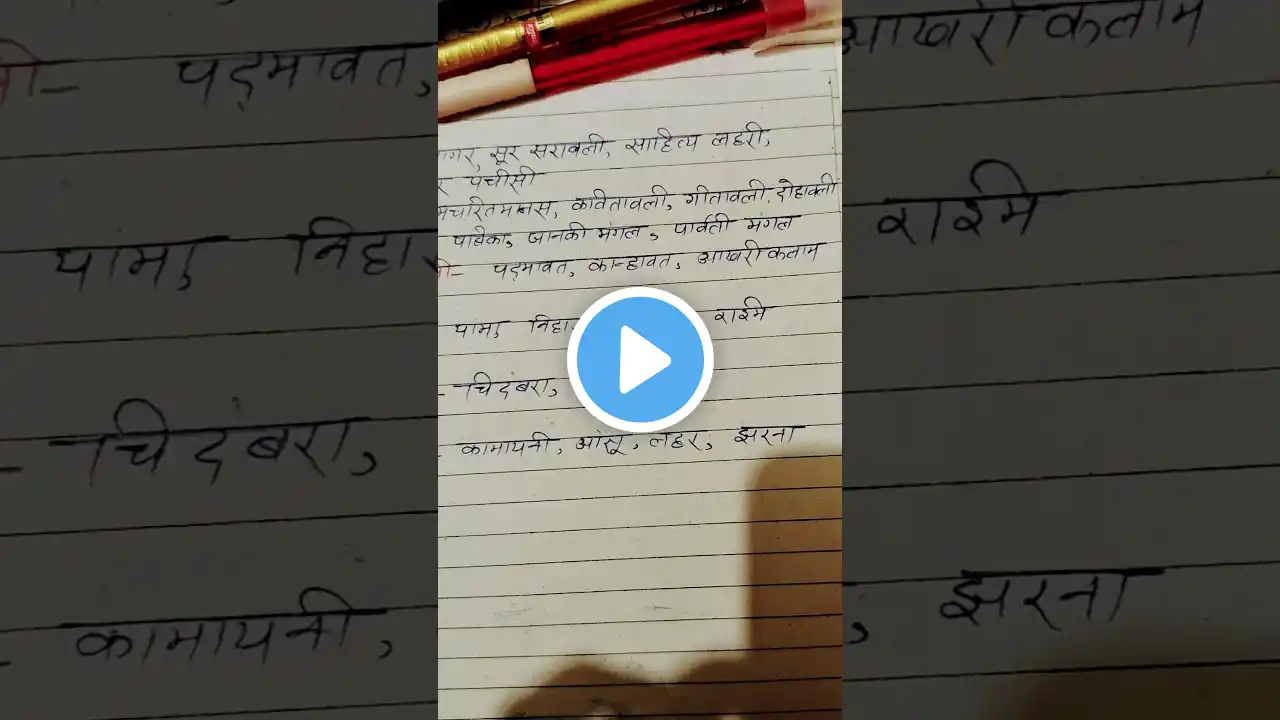 ागर, सूर सरावली, साहित्य लहरी,
र पचीसी
मचरितमानस, कवितावली, गीतावली, दोहावली
पत्रिका, जानकी मंगल, पार्वती मंगल
ी- पद्मावत, कान्हावत, आखरी कलाम
यामा, निहा राश्मि
- चिदंबरा,
- कामायनी, आंसू, लहर, झरना